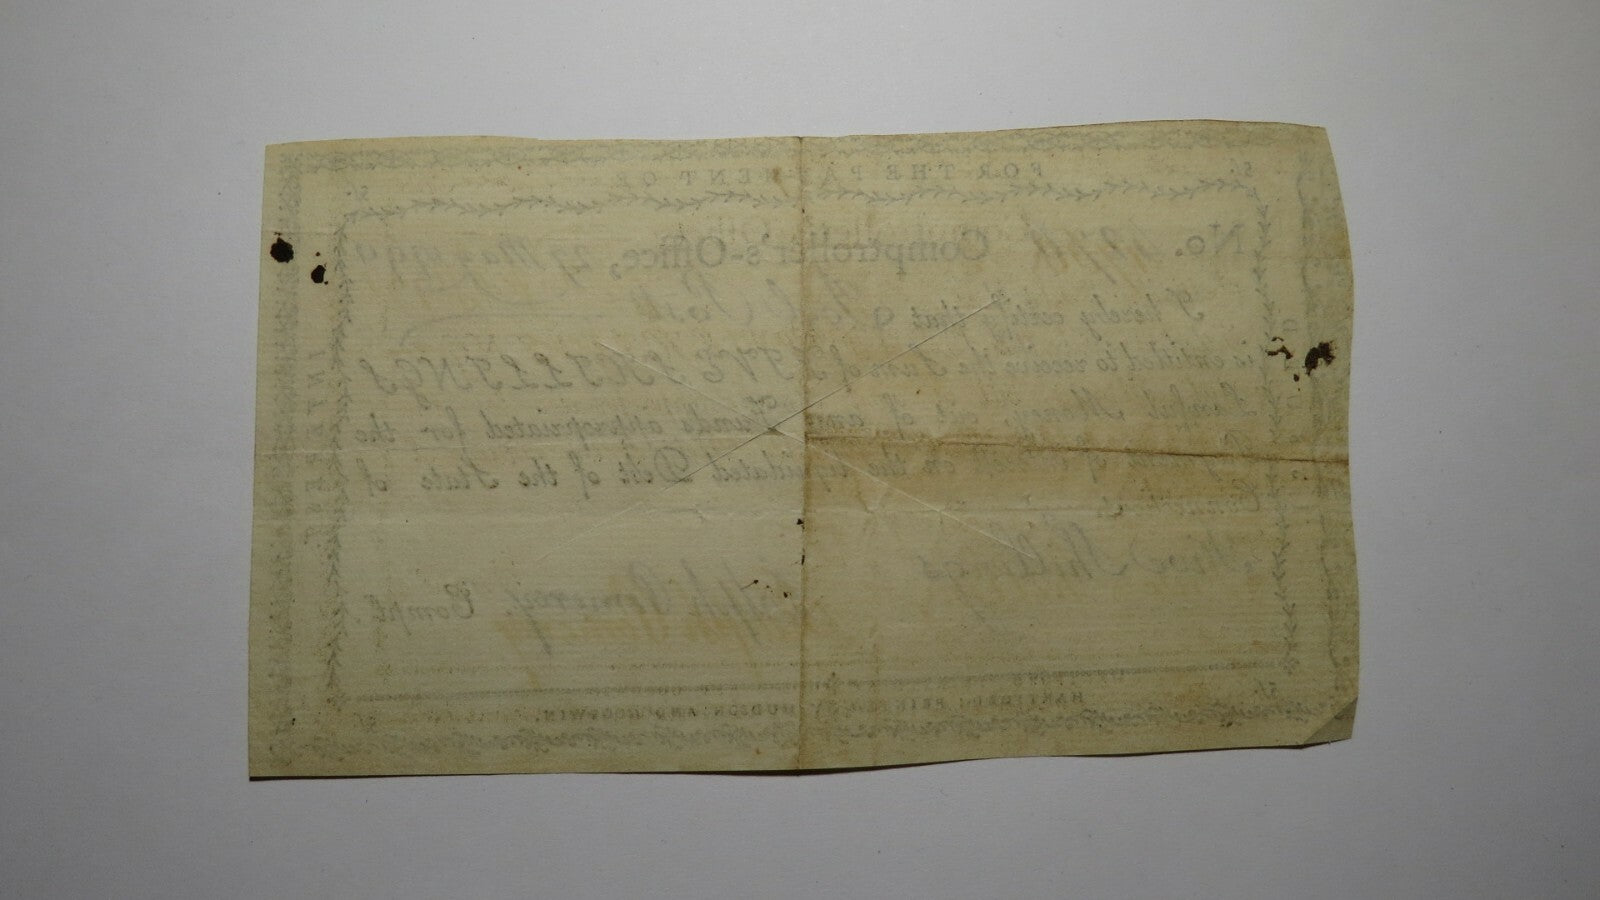 FOR THE PAYMENT OF
5/.
5/.
No. Comptroller's-Office, 29 May 1790
I hereby certify that
is entitled to receive the Sum of FIVE SHILLINGS
Lawful Money, out of any Funds appropriated for the
Payment of Interest on the liquidated Debt of the State of
Connecticut.
Five Shillings
Ralph Pomeroy, Compt.
INTEREST
HARTFORD: PRINTED BY HUDSON AND GOODWIN.
5/.
5/.